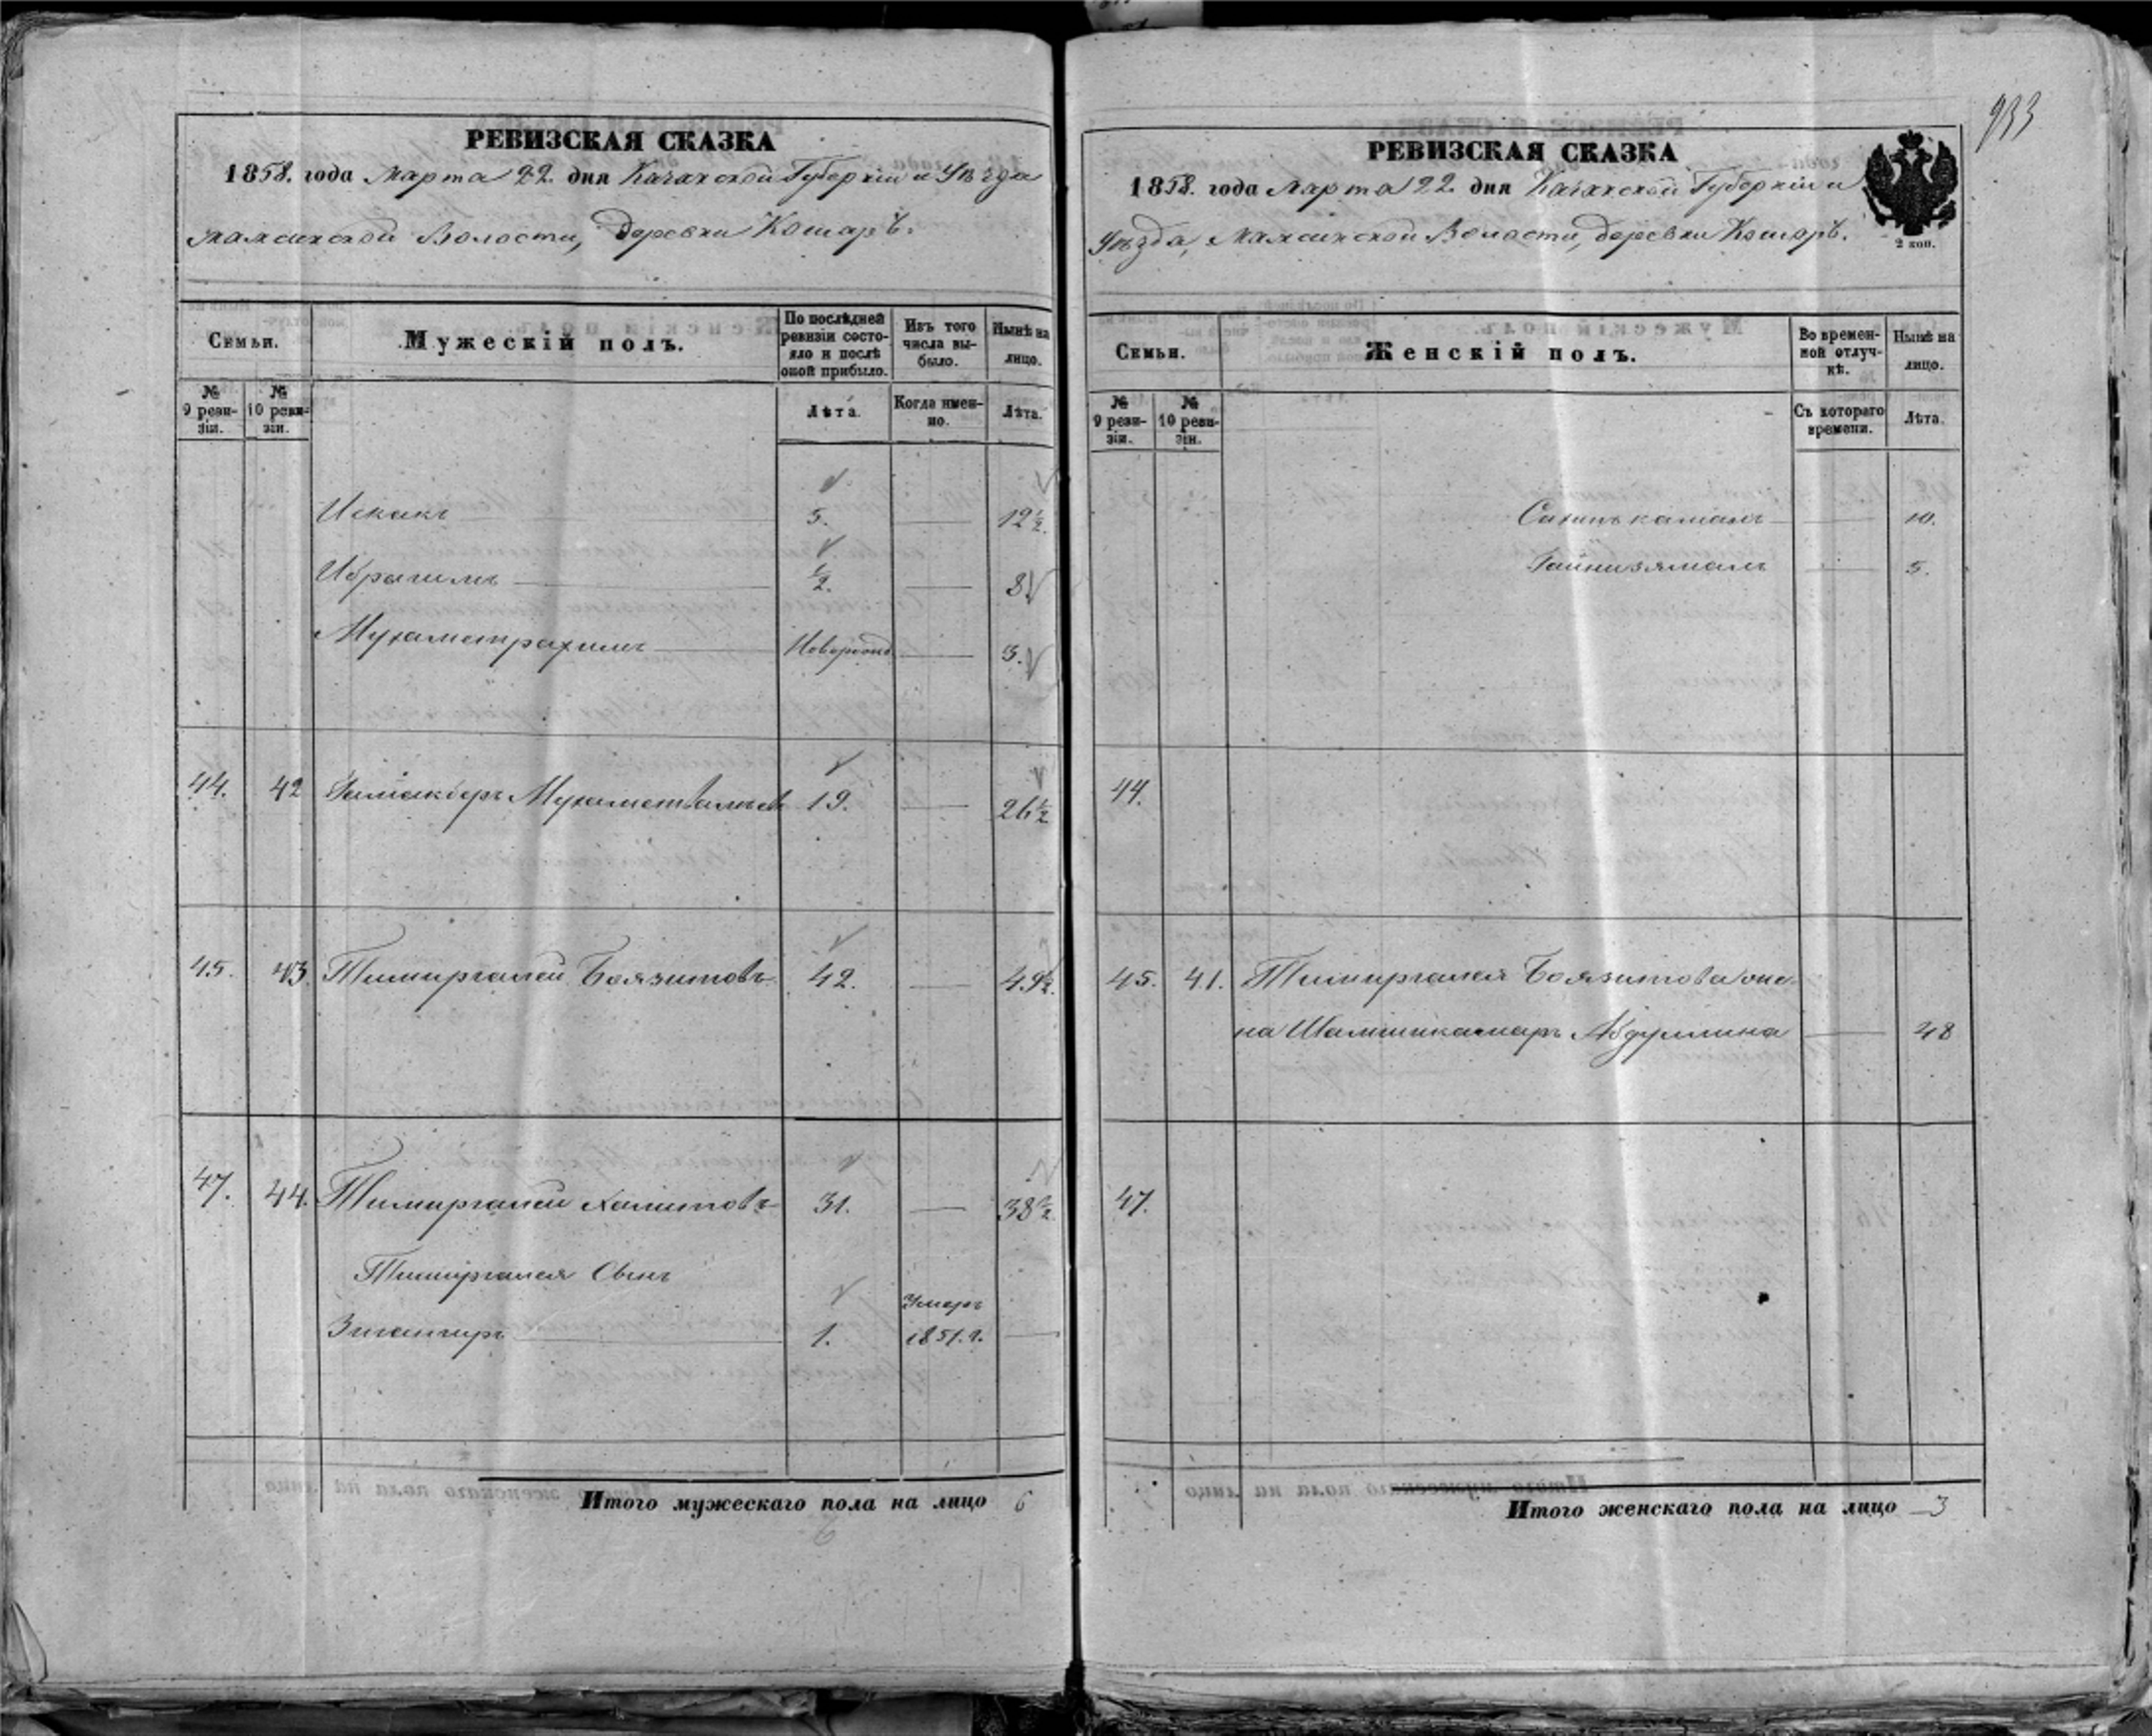 933
РЕВИЗСКАЯ СКАЗКА
1858. года Марта 22. дня Казанской Губернiи и Уѣзда
Мамсинской Волости, деревни Кошаръ.
Семьи.
Мужескiй полъ.
По послѣдней ревизiи состояло и послѣ оной прибыло.
Изъ того числа выбыло.
Нынѣ на лицо.
№ 9 ревизiи.
№ 10 ревизiи.
Лѣта.
Когда именно.
Лѣта.
Искакъ 5. — 12½.
Ибрагимъ ½. — 8
Мухаметрахимъ Новорожд — 3.
44. 42 Мухаметвалеевъ 19. — 26½
45. 43. Тимиргалей Баязитовъ 42. — 49½.
47. 44. Тимиргалей Халитовъ 31. — 38½
Тимиргалея Сынъ
Зигангиръ 1. Умеръ 1851. г. —
Итого мужескаго пола на лицо 6
6
РЕВИЗСКАЯ СКАЗКА
1858. года Марта 22. дня Казанской Губернiи и
Уѣзда, Мамсинской Волости, деревни Кошаръ.
2 коп.
Семьи.
Женскiй полъ.
Во временной отлучкѣ.
Нынѣ на лицо.
№ 9 ревизiи.
№ 10 ревизiи.
Съ котораго времени.
Лѣта.
— 10.
Гайнизямалъ — 5.
44.
45. 41. Тимиргалея Баязитова же-
на Шамшикамаръ Абдуллина — 48
47.
Итого женскаго пола на лицо 3